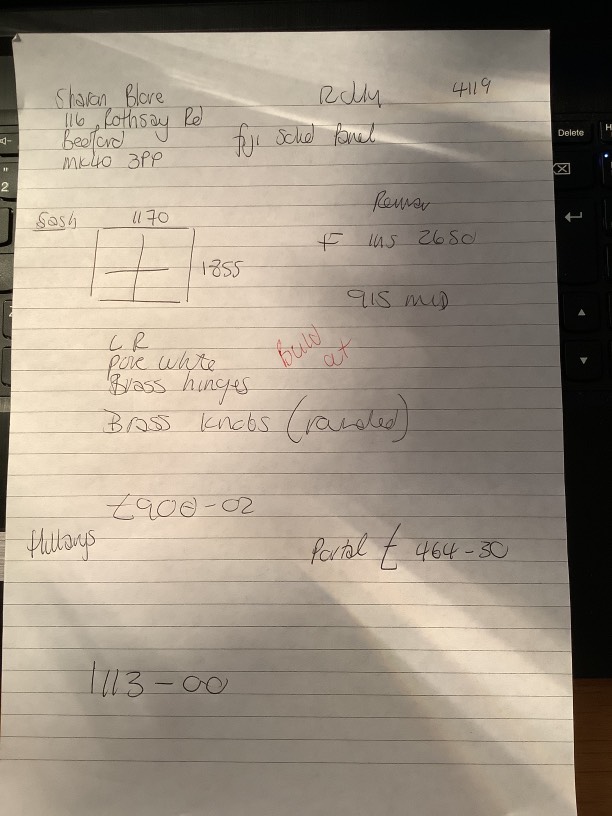 Sharon Blore
4119
116, Rothsay Rd
Bedford
MK40 3PP
fiji solid Panel
Sash
1170
1855
F ins 2650
915 mid
L R
pure white
Brass hinges
Brass knobs (rounded)
Build
at
£906-02
Hillarys
Portal £ 464-30
1113-00
Delete